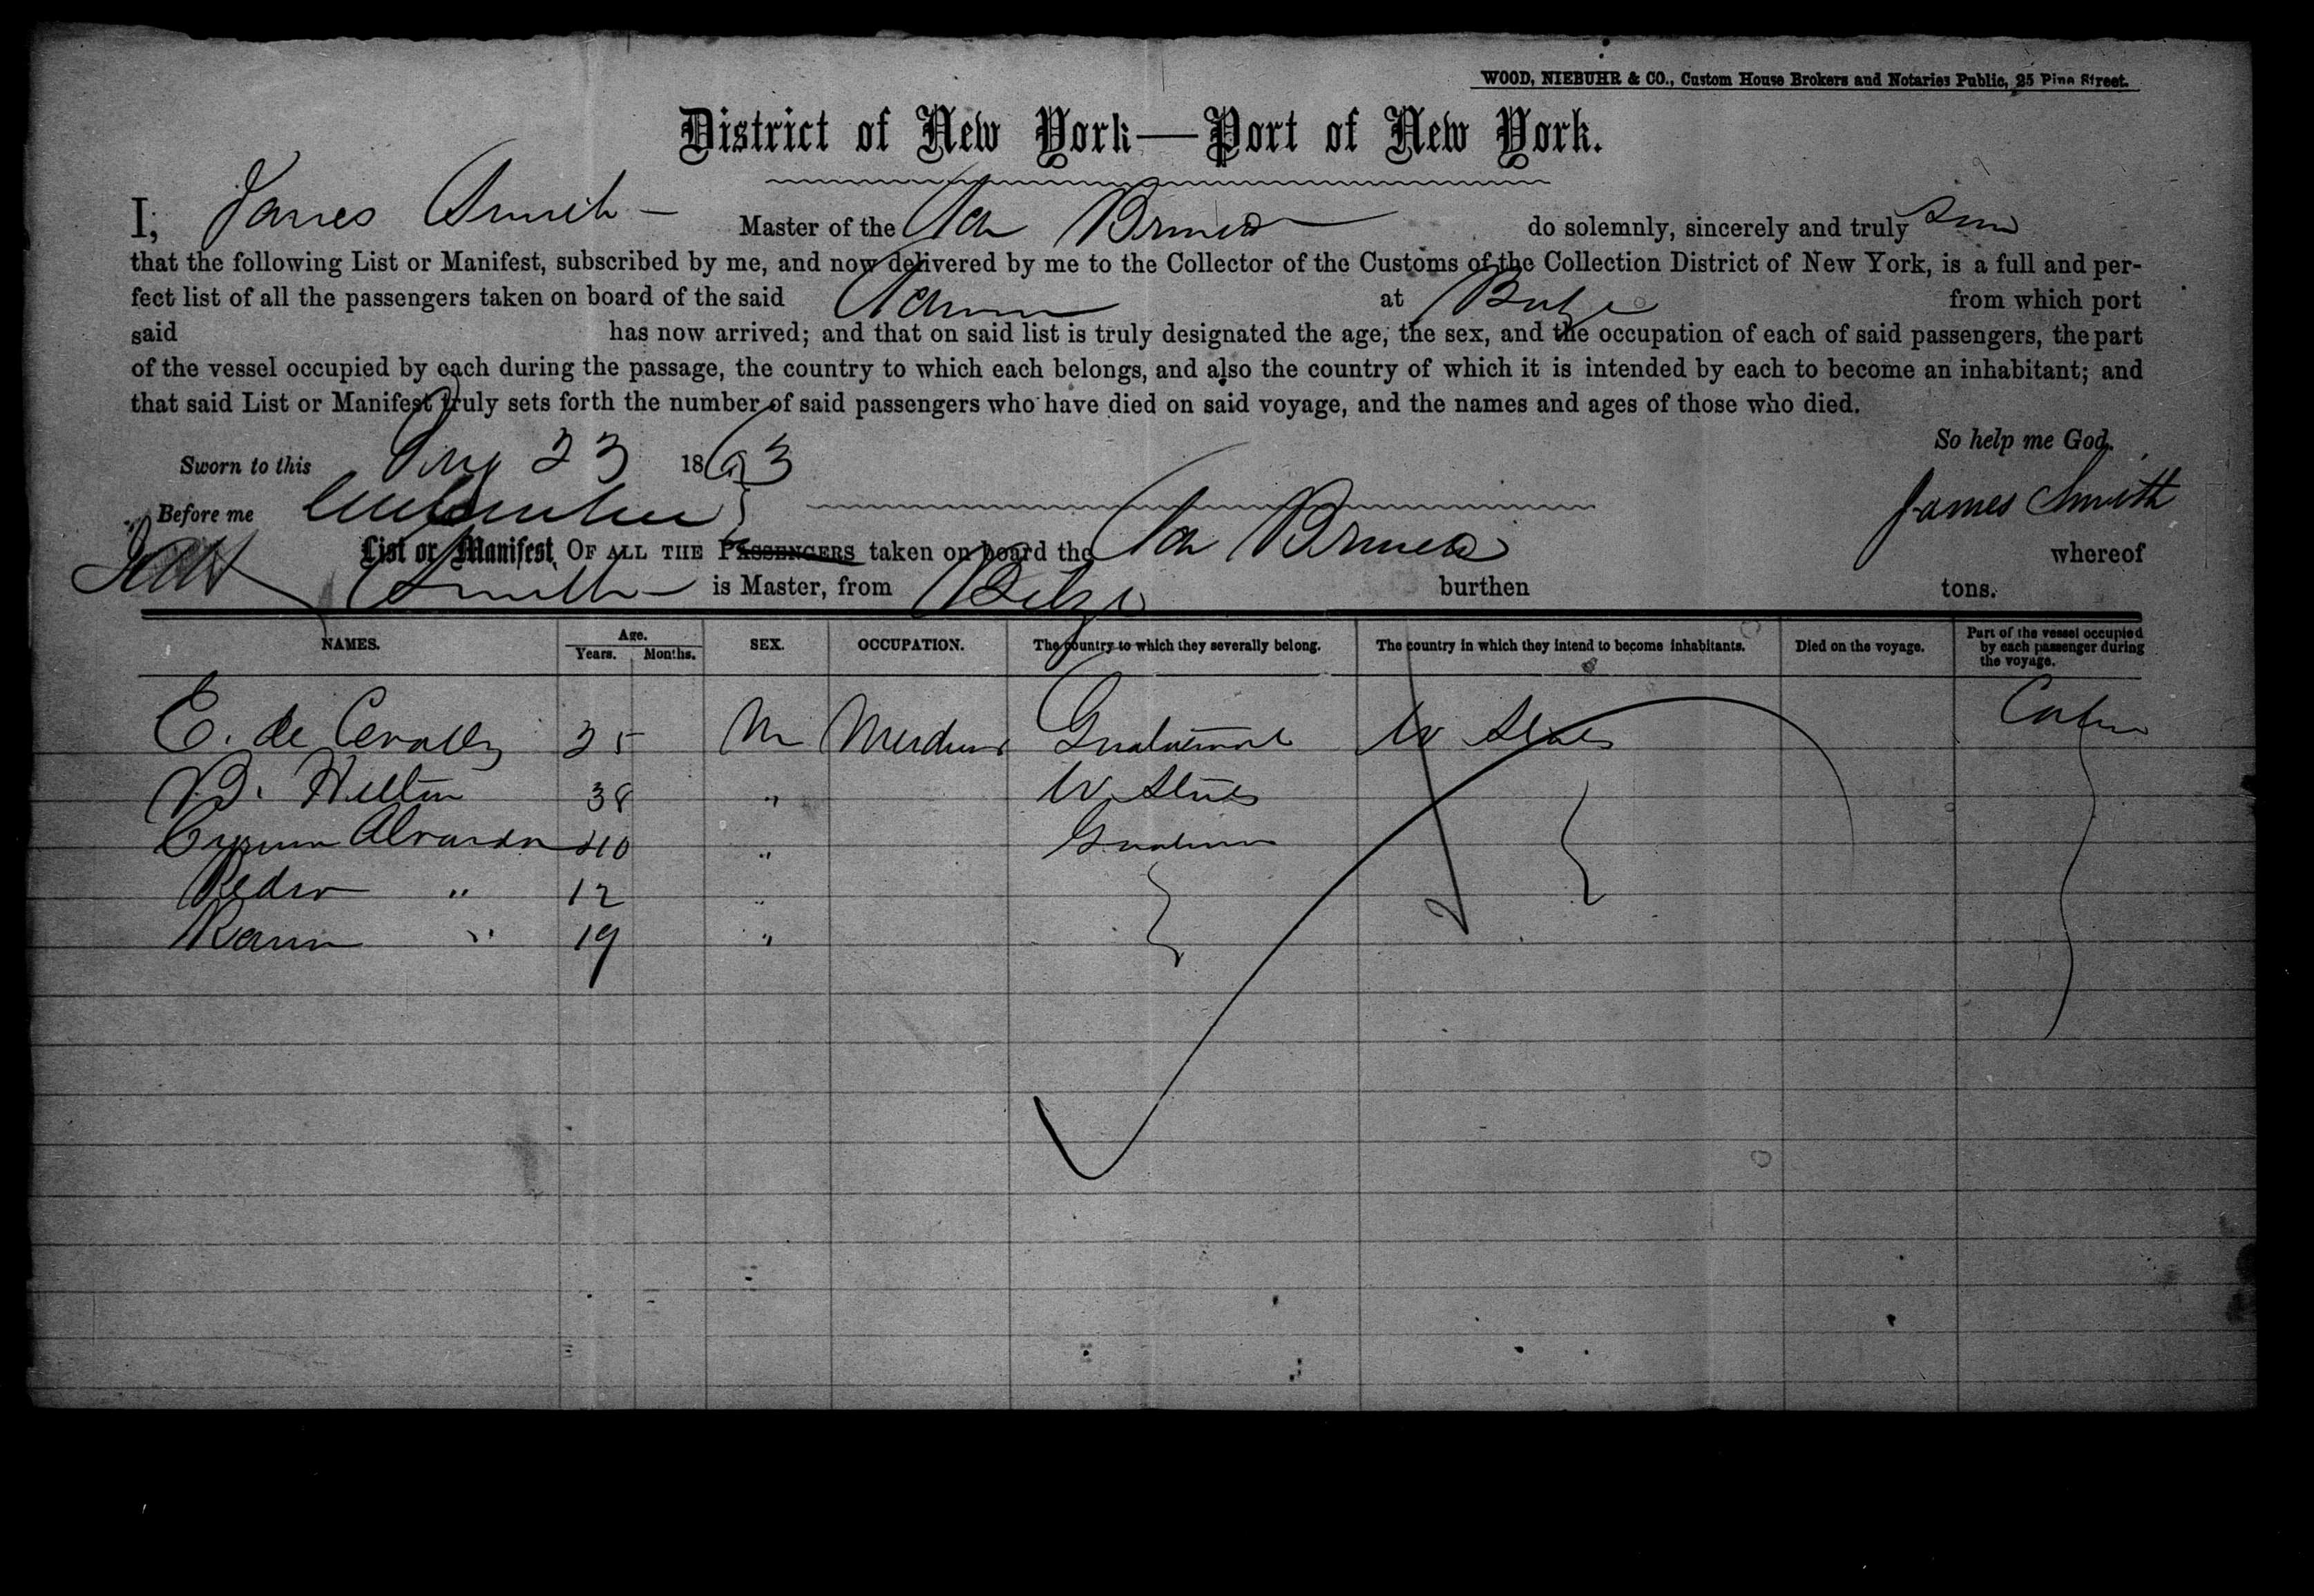 WOOD, NIEBUHR & CO., Custom House Brokers and Notaries Public, 25 Pine Street.
District of New York—Port of New York.
I, James Smith — Master of the Sch do solemnly, sincerely and truly
that the following List or Manifest, subscribed by me, and now delivered by me to the Collector of the Customs of the Collection District of New York, is a full and per-
fect list of all the passengers taken on board of the said at from which port
said has now arrived; and that on said list is truly designated the age, the sex, and the occupation of each of said passengers, the part
of the vessel occupied by each during the passage, the country to which each belongs, and also the country of which it is intended by each to become an inhabitant; and
that said List or Manifest truly sets forth the number of said passengers who have died on said voyage, and the names and ages of those who died.
So help me God.
Sworn to this 23 1863
Before me James Smith
List or Manifest, OF ALL THE PASSENGERS taken on board the Sch whereof
Smith is Master, from burthen tons.
NAMES. Age. Years. Months. SEX. OCCUPATION. The country to which they severally belong. The country in which they intend to become inhabitants. Died on the voyage. Part of the vessel occupied by each passenger during the voyage.
E. de 35 M Cabin
B. 38 "
Alvarado 40 "
Pedro " 12 "
" 19 "